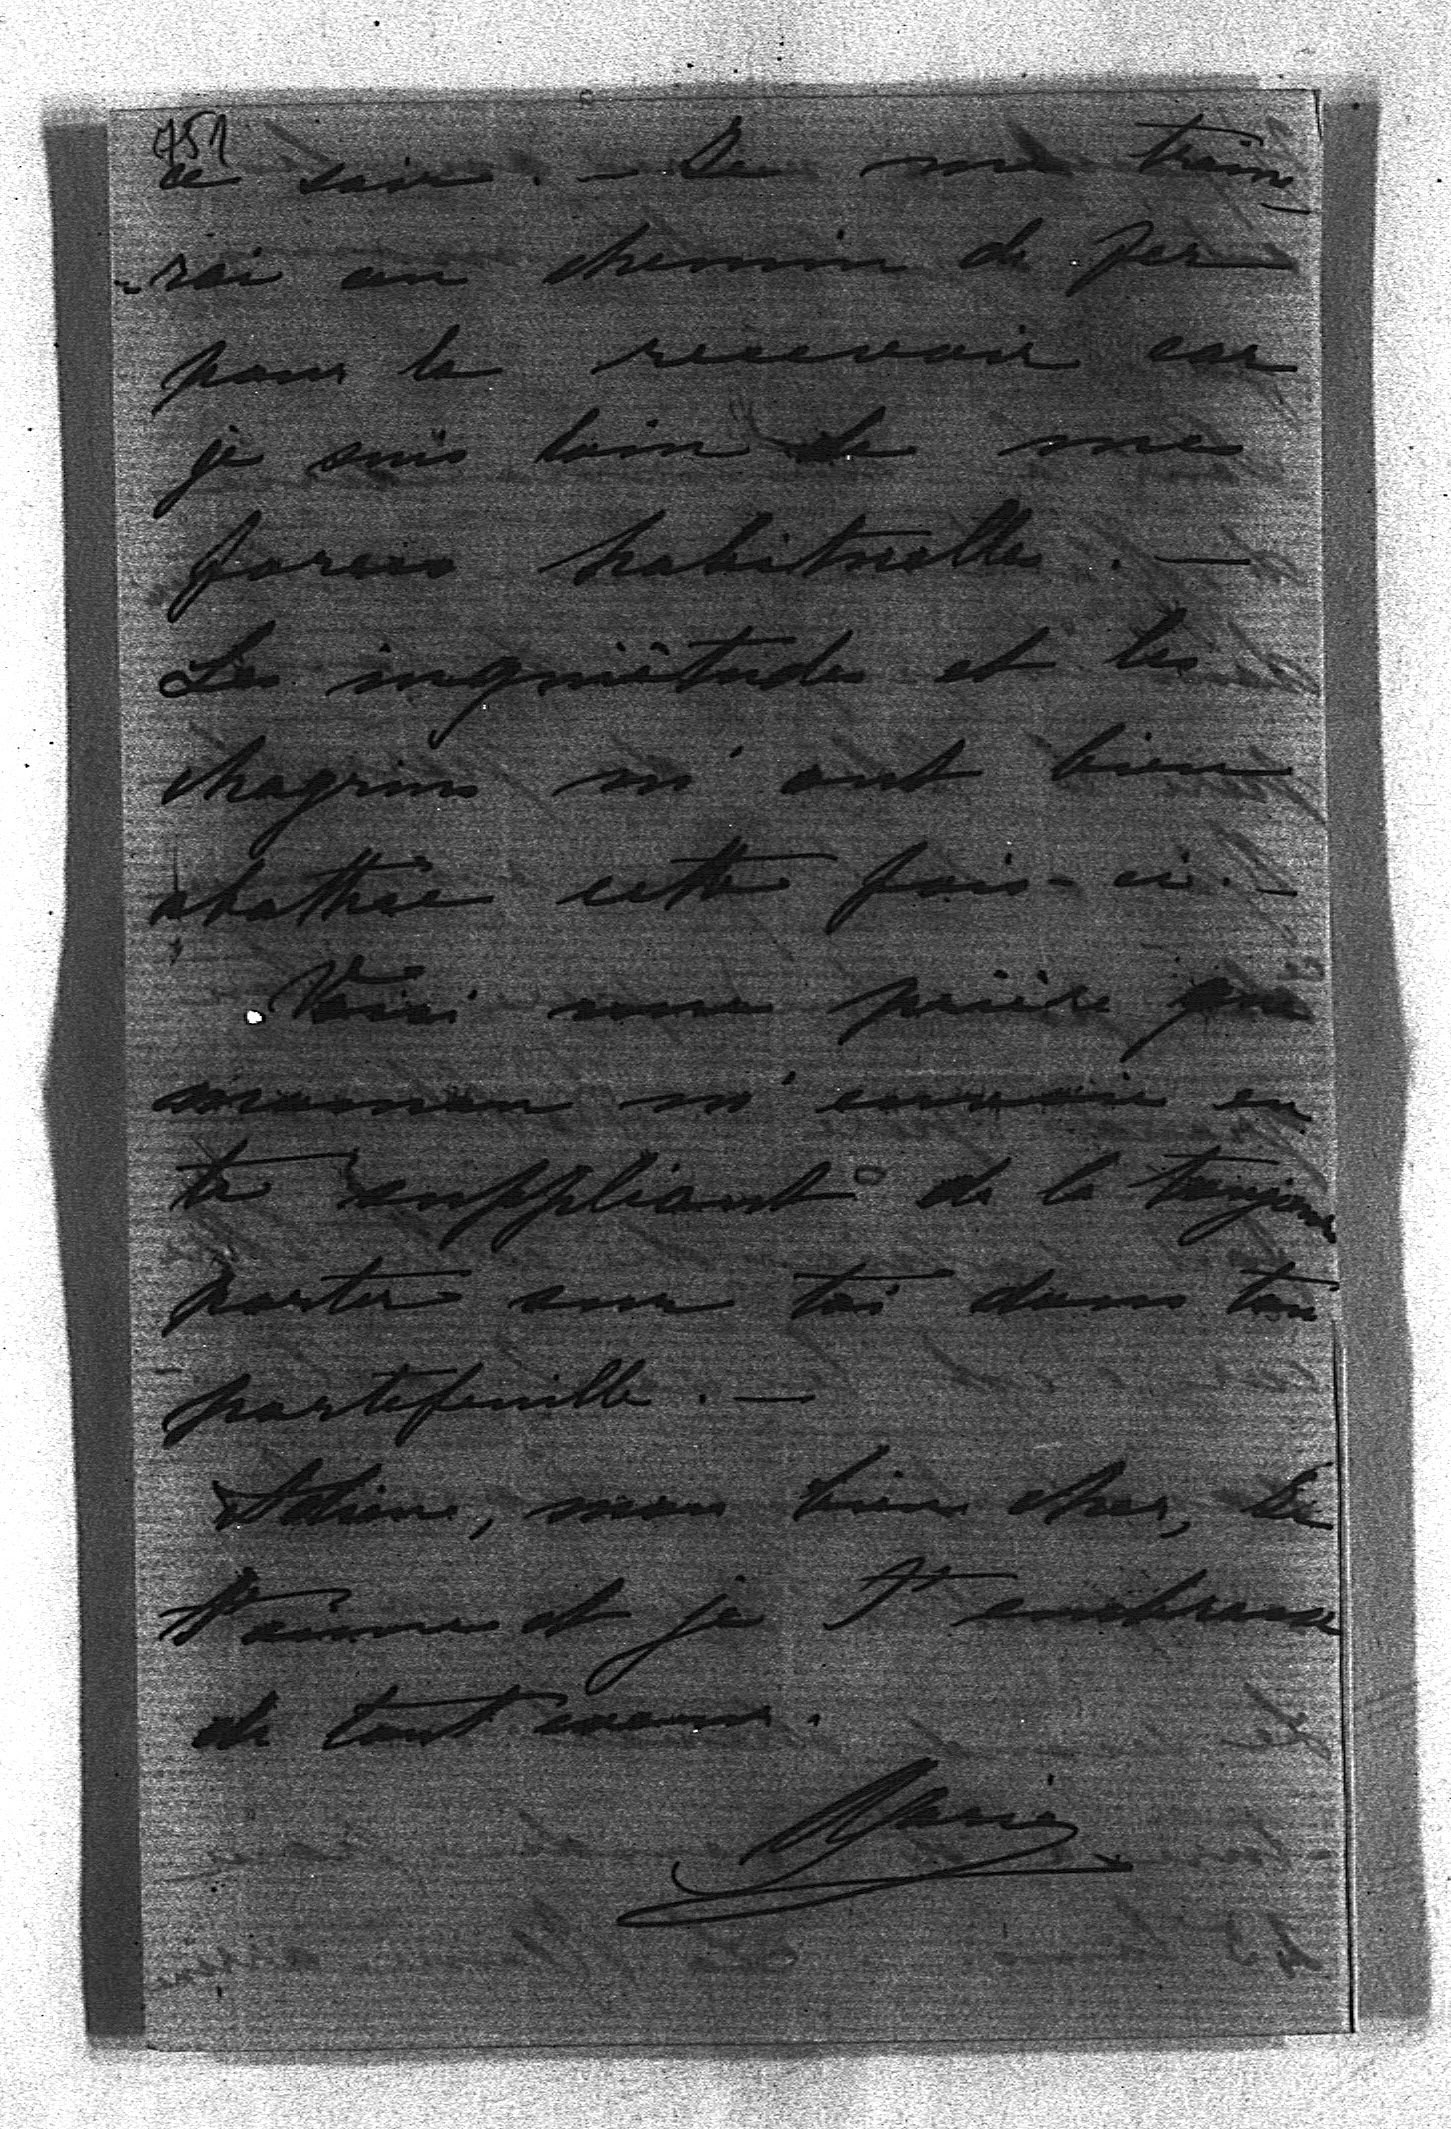 751
ce soir. — Je me traîne-
-rai au chemin de fer
pour la recevoir car
je suis loin de mes
forces habituelles. —
Les inquiétudes et les
chagrins m'ont bien
abattue cette fois-ci. —
Voici une prière que
maman m'envoie en
te suppliant de la toujours
porter sur toi dans ton
portefeuille. —
Adieu, mon bien cher, Je
t'aime et je t'embrasse
de tout coeur.
Marie